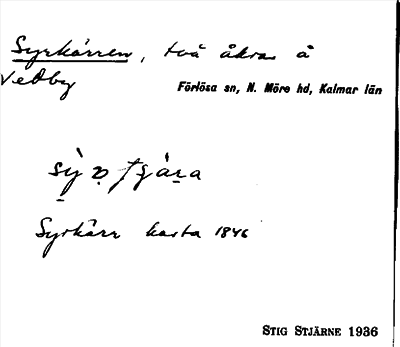 Syrkärren, två åkrar å
Vedby
Förlösa sn, N. Möre hd, Kalmar län
Syrkärr karta 1846
STIG STJÄRNE 1936